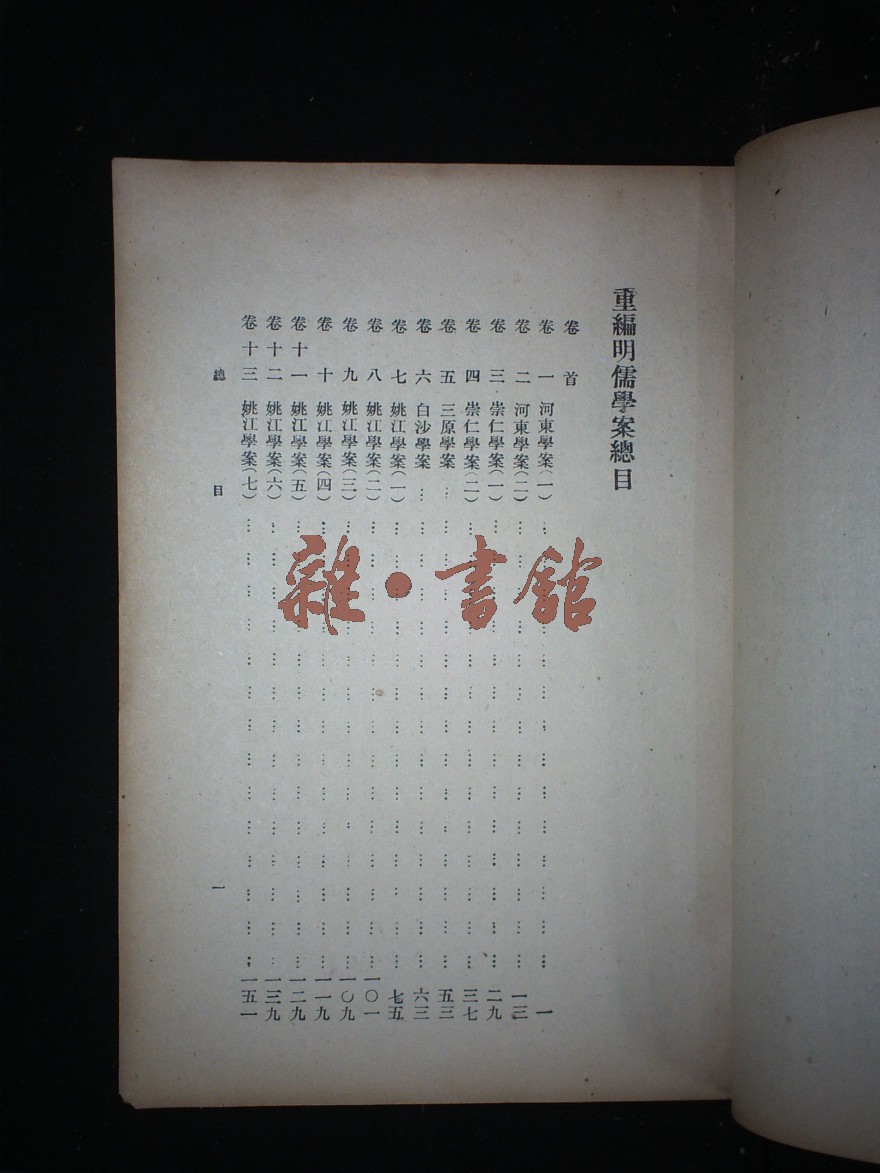 重編明儒學案總目
卷首
卷一 河東學案(一)……一
卷二 河東學案(二)……一三
卷三 崇仁學案(一)……二九
卷四 崇仁學案(二)……三七
卷五 三原學案……五三
卷六 白沙學案……六三
卷七 姚江學案(一)……七五
卷八 姚江學案(二)……一〇一
卷九 姚江學案(三)……一〇九
卷十 姚江學案(四)……一一九
卷十一 姚江學案(五)……一二九
卷十二 姚江學案(六)……一三九
卷十三 姚江學案(七)……一五一
總目 一
雜·書館